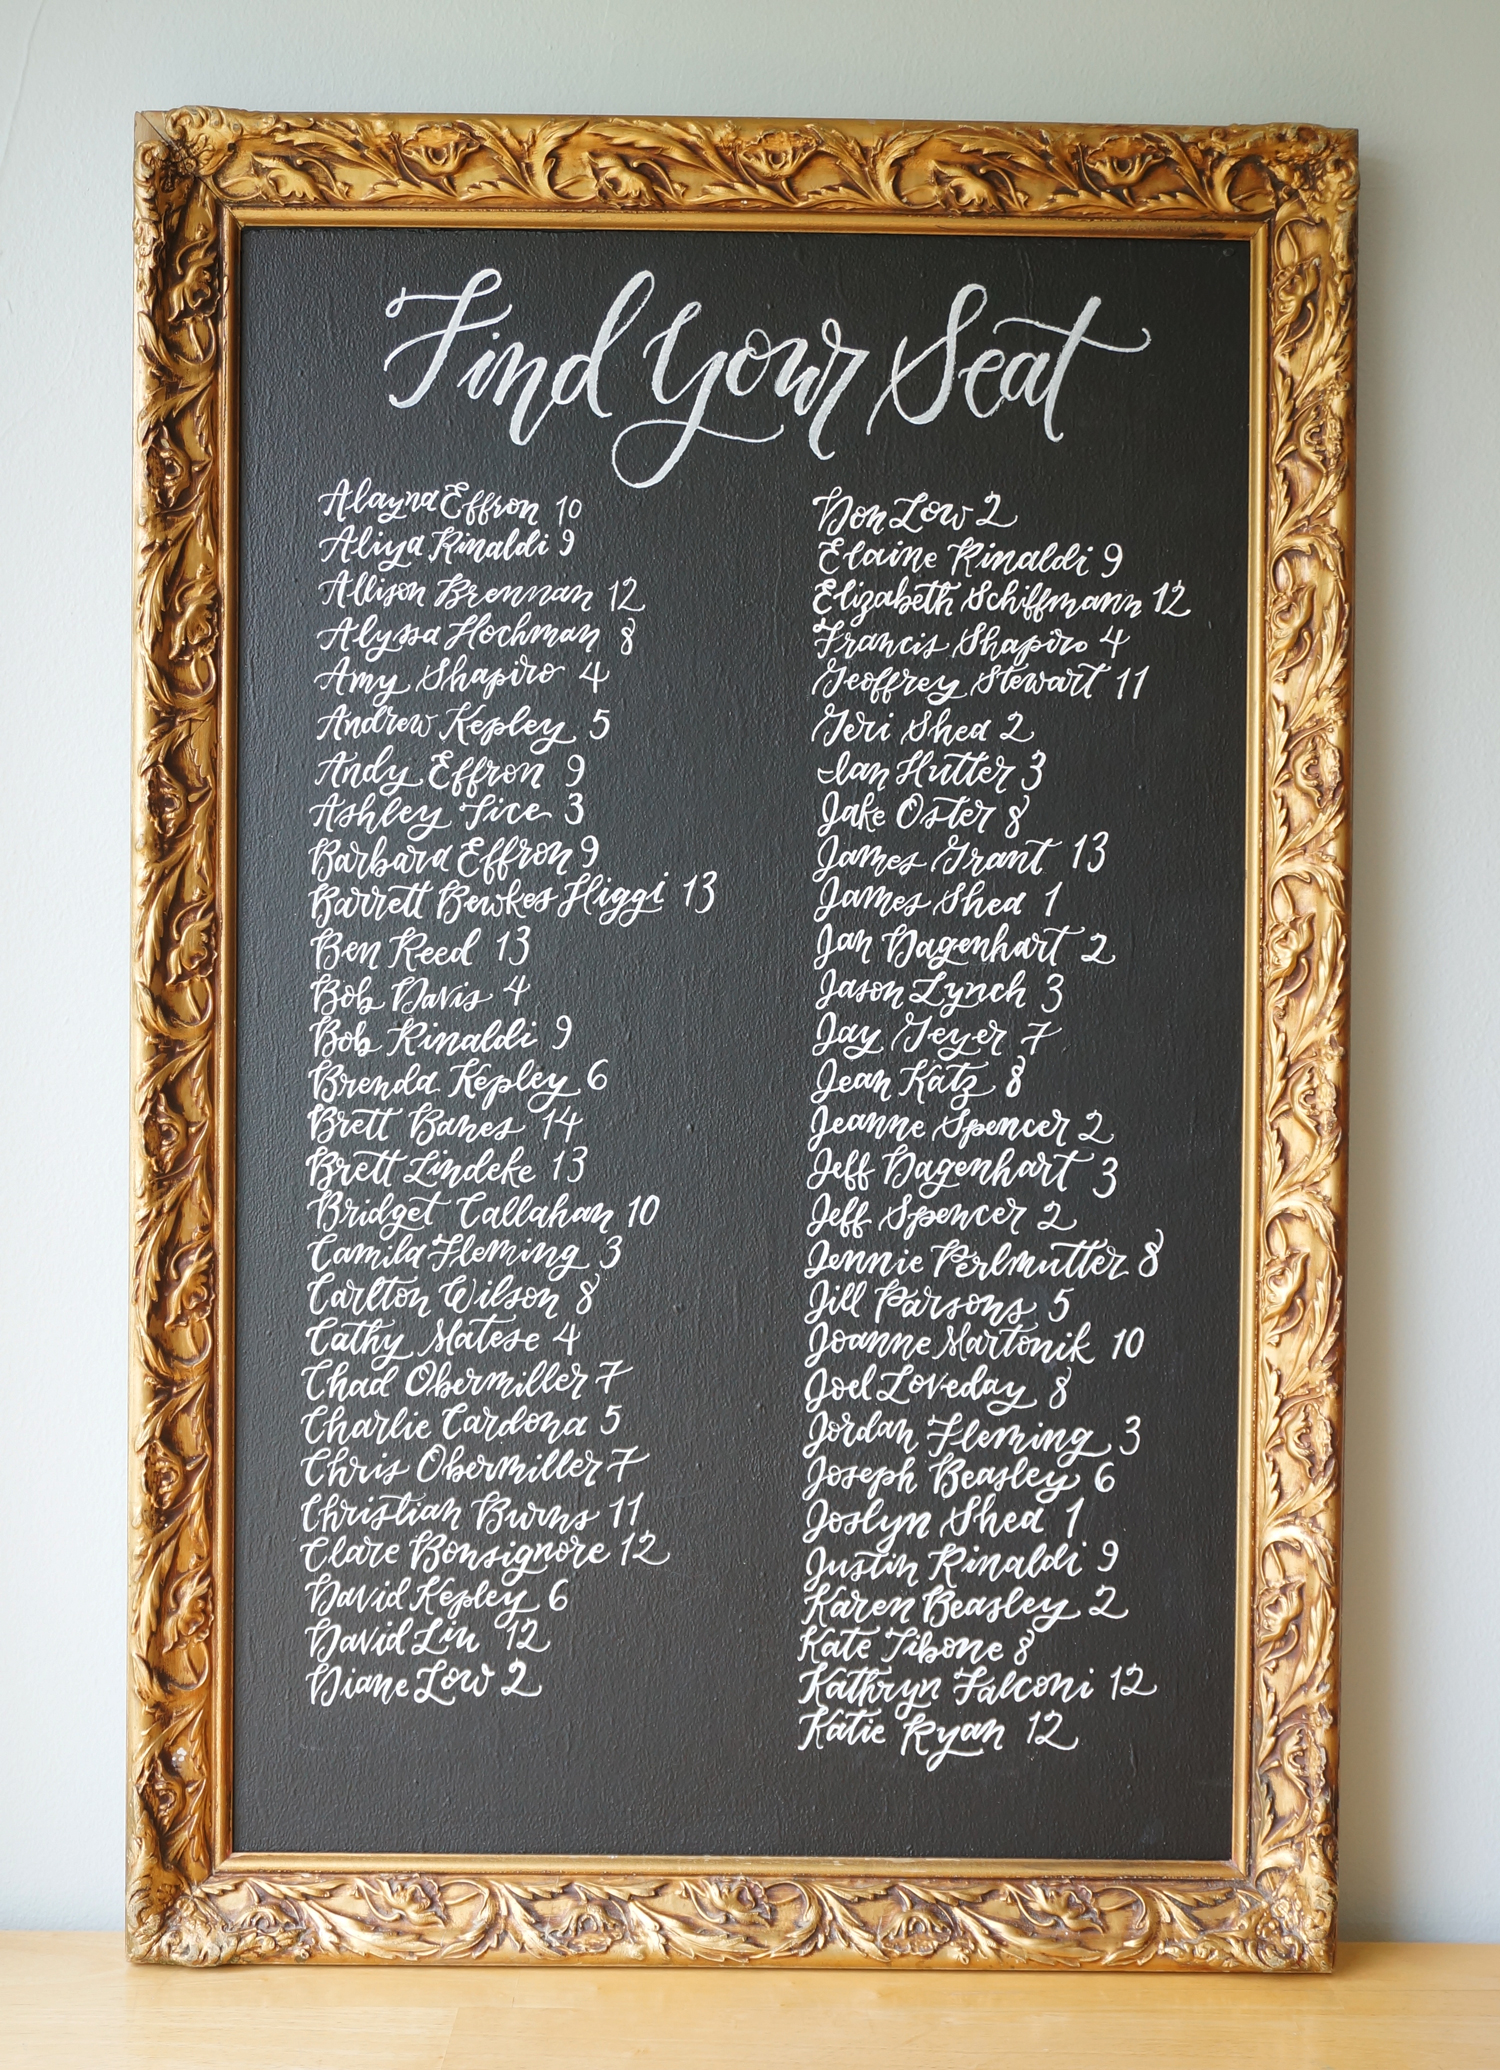 Find Your Seat
Alayna Effron 10
Aliya Rinaldi 9
Allison Brennan 12
Alyssa Hochman 8
Amy Shapiro 4
Andrew Kepley 5
Andy Effron 9
Ashley Tice 3
Barbara Effron 9
Barrett Bewkes Higgi 13
Ben Reed 13
Bob Davis 4
Bob Rinaldi 9
Brenda Kepley 6
Brett Banes 14
Brett Lindeke 13
Bridget Callahan 10
Camila Fleming 3
Carlton Wilson 8
Cathy Matese 4
Chad Obermiller 7
Charlie Cardona 5
Chris Obermiller 7
Christian Burns 11
Clare Bonsignore 12
David Kepley 6
David Liu 12
Diane Low 2
Don Low 2
Elaine Rinaldi 9
Elizabeth Schiffmann 12
Francis Shapiro 4
Geoffrey Stewart 11
Geri Shea 2
Ian Hutter 3
Jake Oster 8
James Grant 13
James Shea 1
Jan Dagenhart 2
Jason Lynch 3
Jay Geyer 7
Jean Katz 8
Jeanne Spencer 2
Jeff Dagenhart 3
Jeff Spencer 2
Jennie Perlmutter 8
Jill Parsons 5
Joanne Martonik 10
Joel Loveday 8
Jordan Fleming 3
Joseph Beasley 6
Joslyn Shea 1
Justin Rinaldi 9
Karen Beasley 2
Kate Tibone 8
Kathryn Falconi 12
Katie Ryan 12